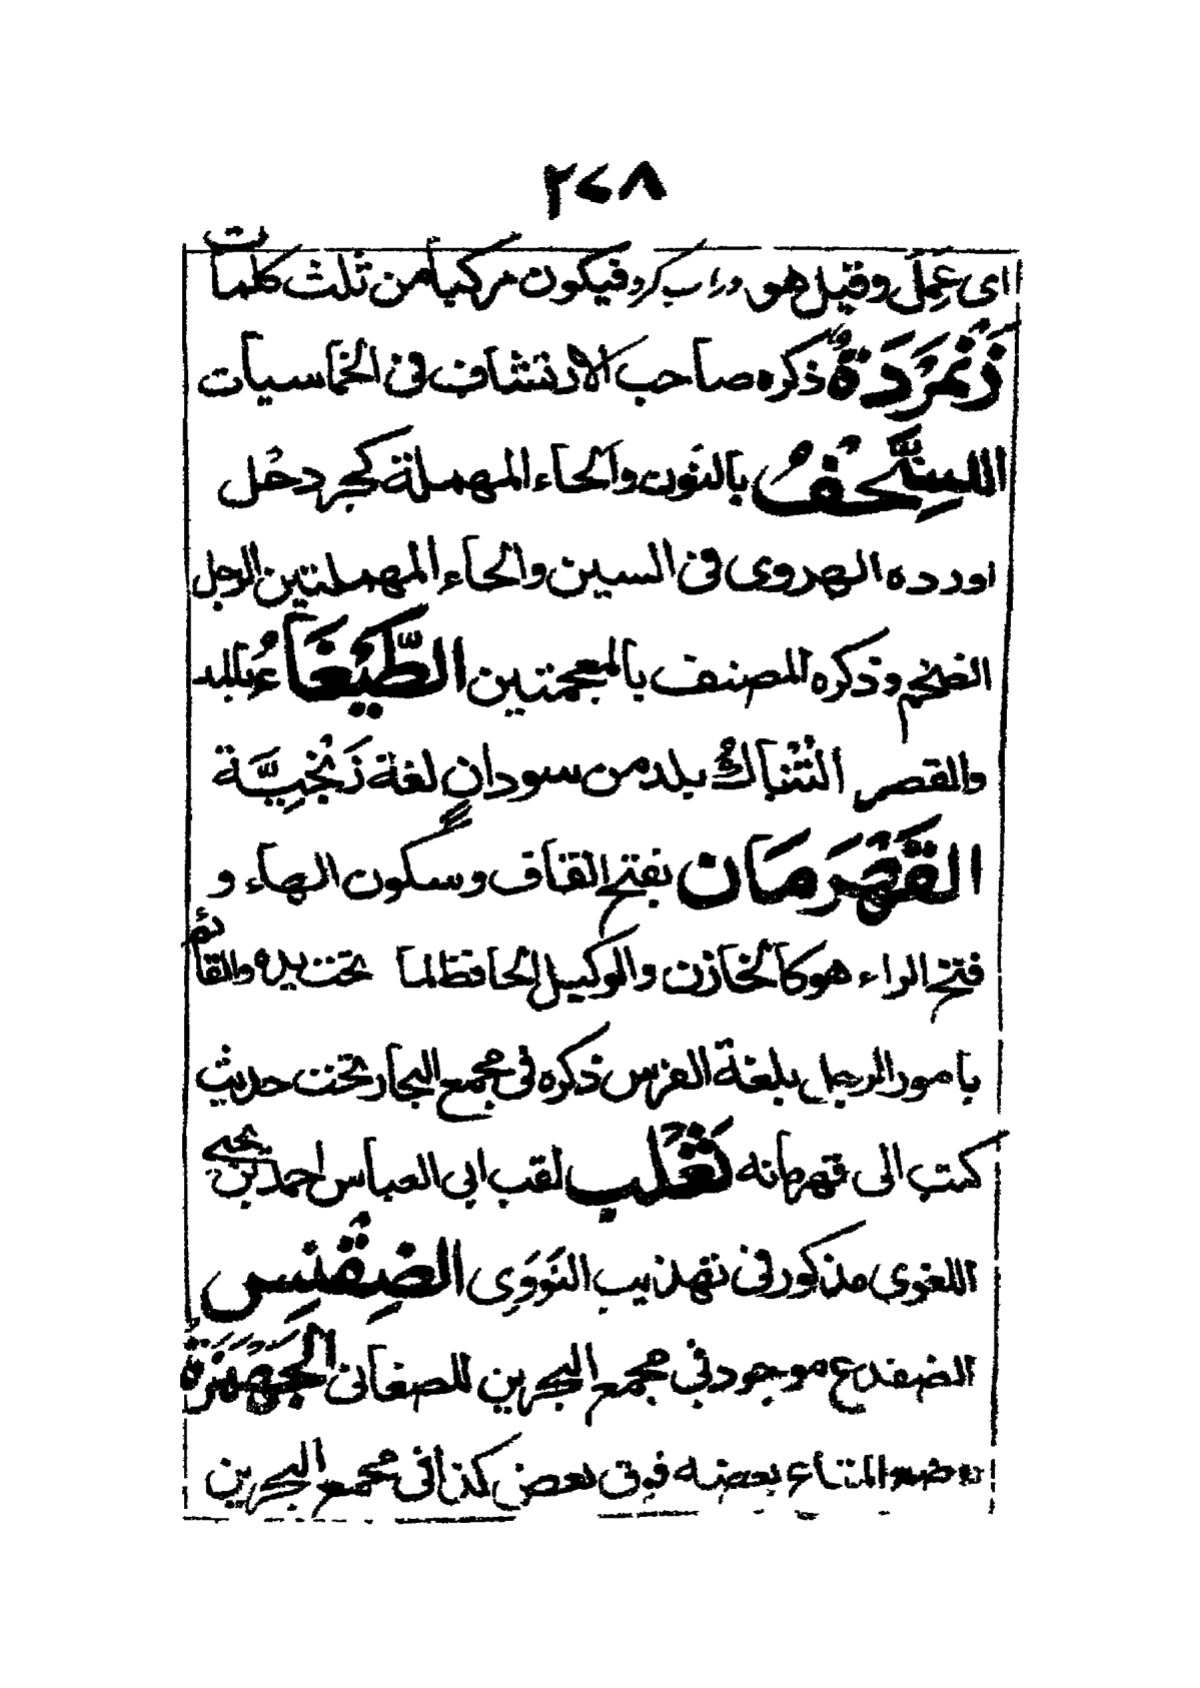 ٢٧٨
اى عَمِلَ وقيل هو دراب كرد فيكون مركبا من ثلث كلمات
زَنْمَرْدَةٌ ذكره صاحب الارتشاف فى الخماسيات
السِنَّحْفُ بالنون والحاء المهملة كجردحل
اورده الهروى فى السين والحاء المهملتين الرجل
الضخم وذكره المصنف بالمعجمتين الطَّيْغَاءُ بالمد
والقصر التُنْبَاكُ بلد من سودان لغة زَنْجِيَّة
القَهْرَمَان بفتح القاف وسكون الهاء و
فتح الراء هو كالخازن والوكيل الحافظ لما تحت يده والقائم
بامور الرجل بلغة الفرس ذكره فى مجمع البحار تحت حديث
كتب الى قهرمانه ثَعْلَب لقب ابى العباس احمد بن يحيى
اللغوى مذكور فى تهذيب النَوَوِى الضِفْنِس
الضفدع موجود فى مجمع البحرين للصغانى الجَهْمَزَة
وضع المتاء بعضه فوق بعض كذا فى مجمع البحرين